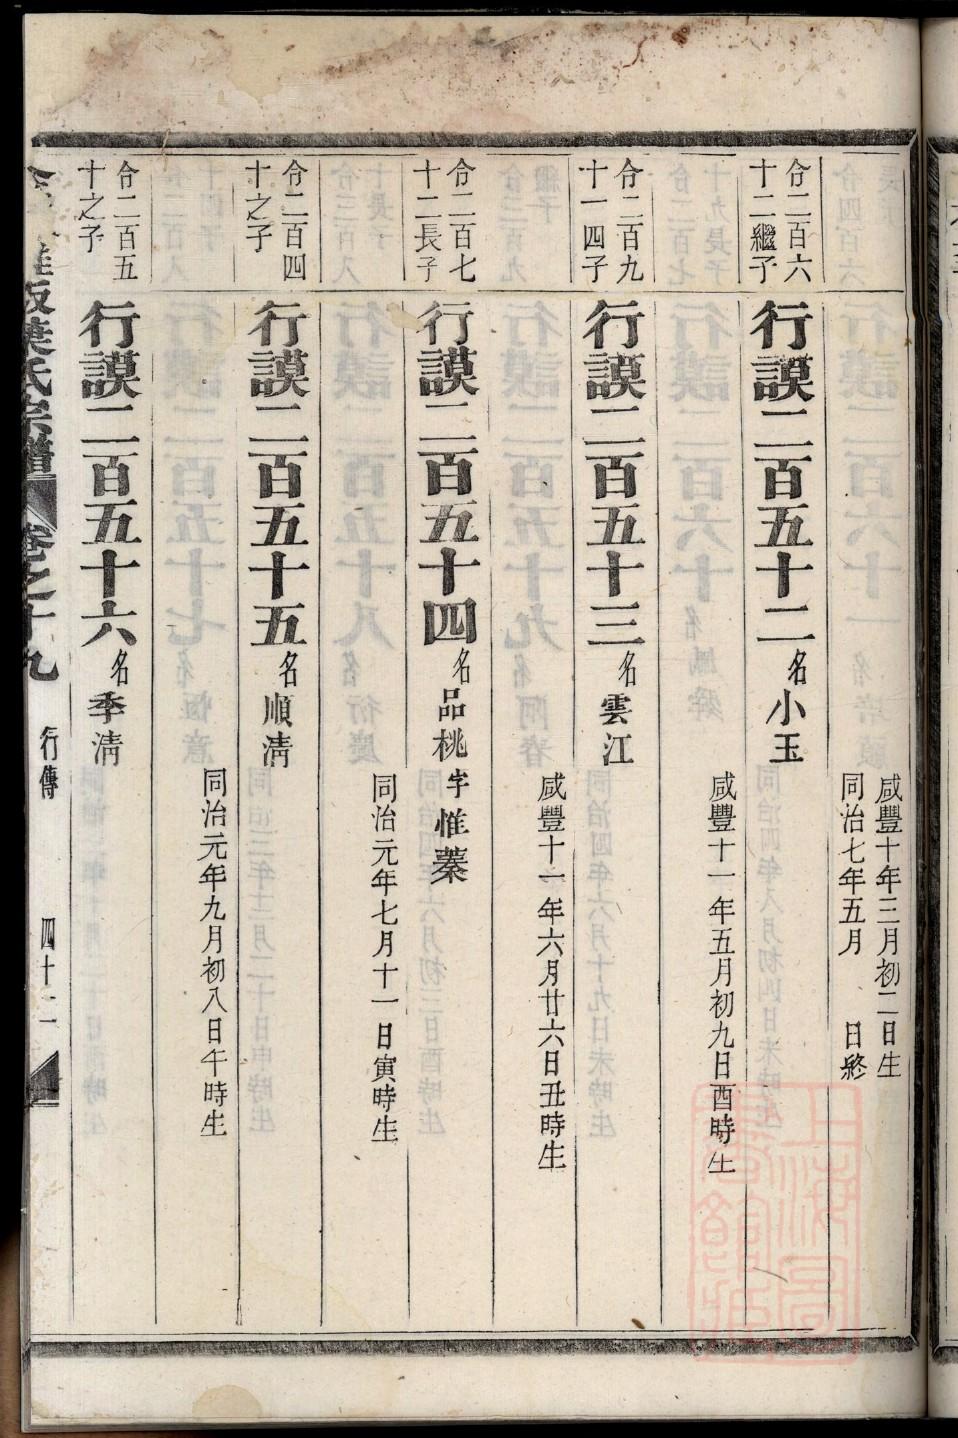 咸豐十年三月初二日生
同治七年五月 日終
令二百六
十二繼子
行謨二百五十二名小玉
咸豐十一年五月初九日酉時生
令二百九
十一四子
行謨二百五十三名雲江
咸豐十一年六月廿六日丑時生
令二百七
十二長子
行謨二百五十四名品桃字惟蓁
同治元年七月十一日寅時生
令二百四
十之子
行謨二百五十五名順清
同治元年九月初八日午時生
令二百五
十之子
行謨二百五十六名季清
葉氏宗譜 卷之十九 行傳 四十二
上海圖書館藏